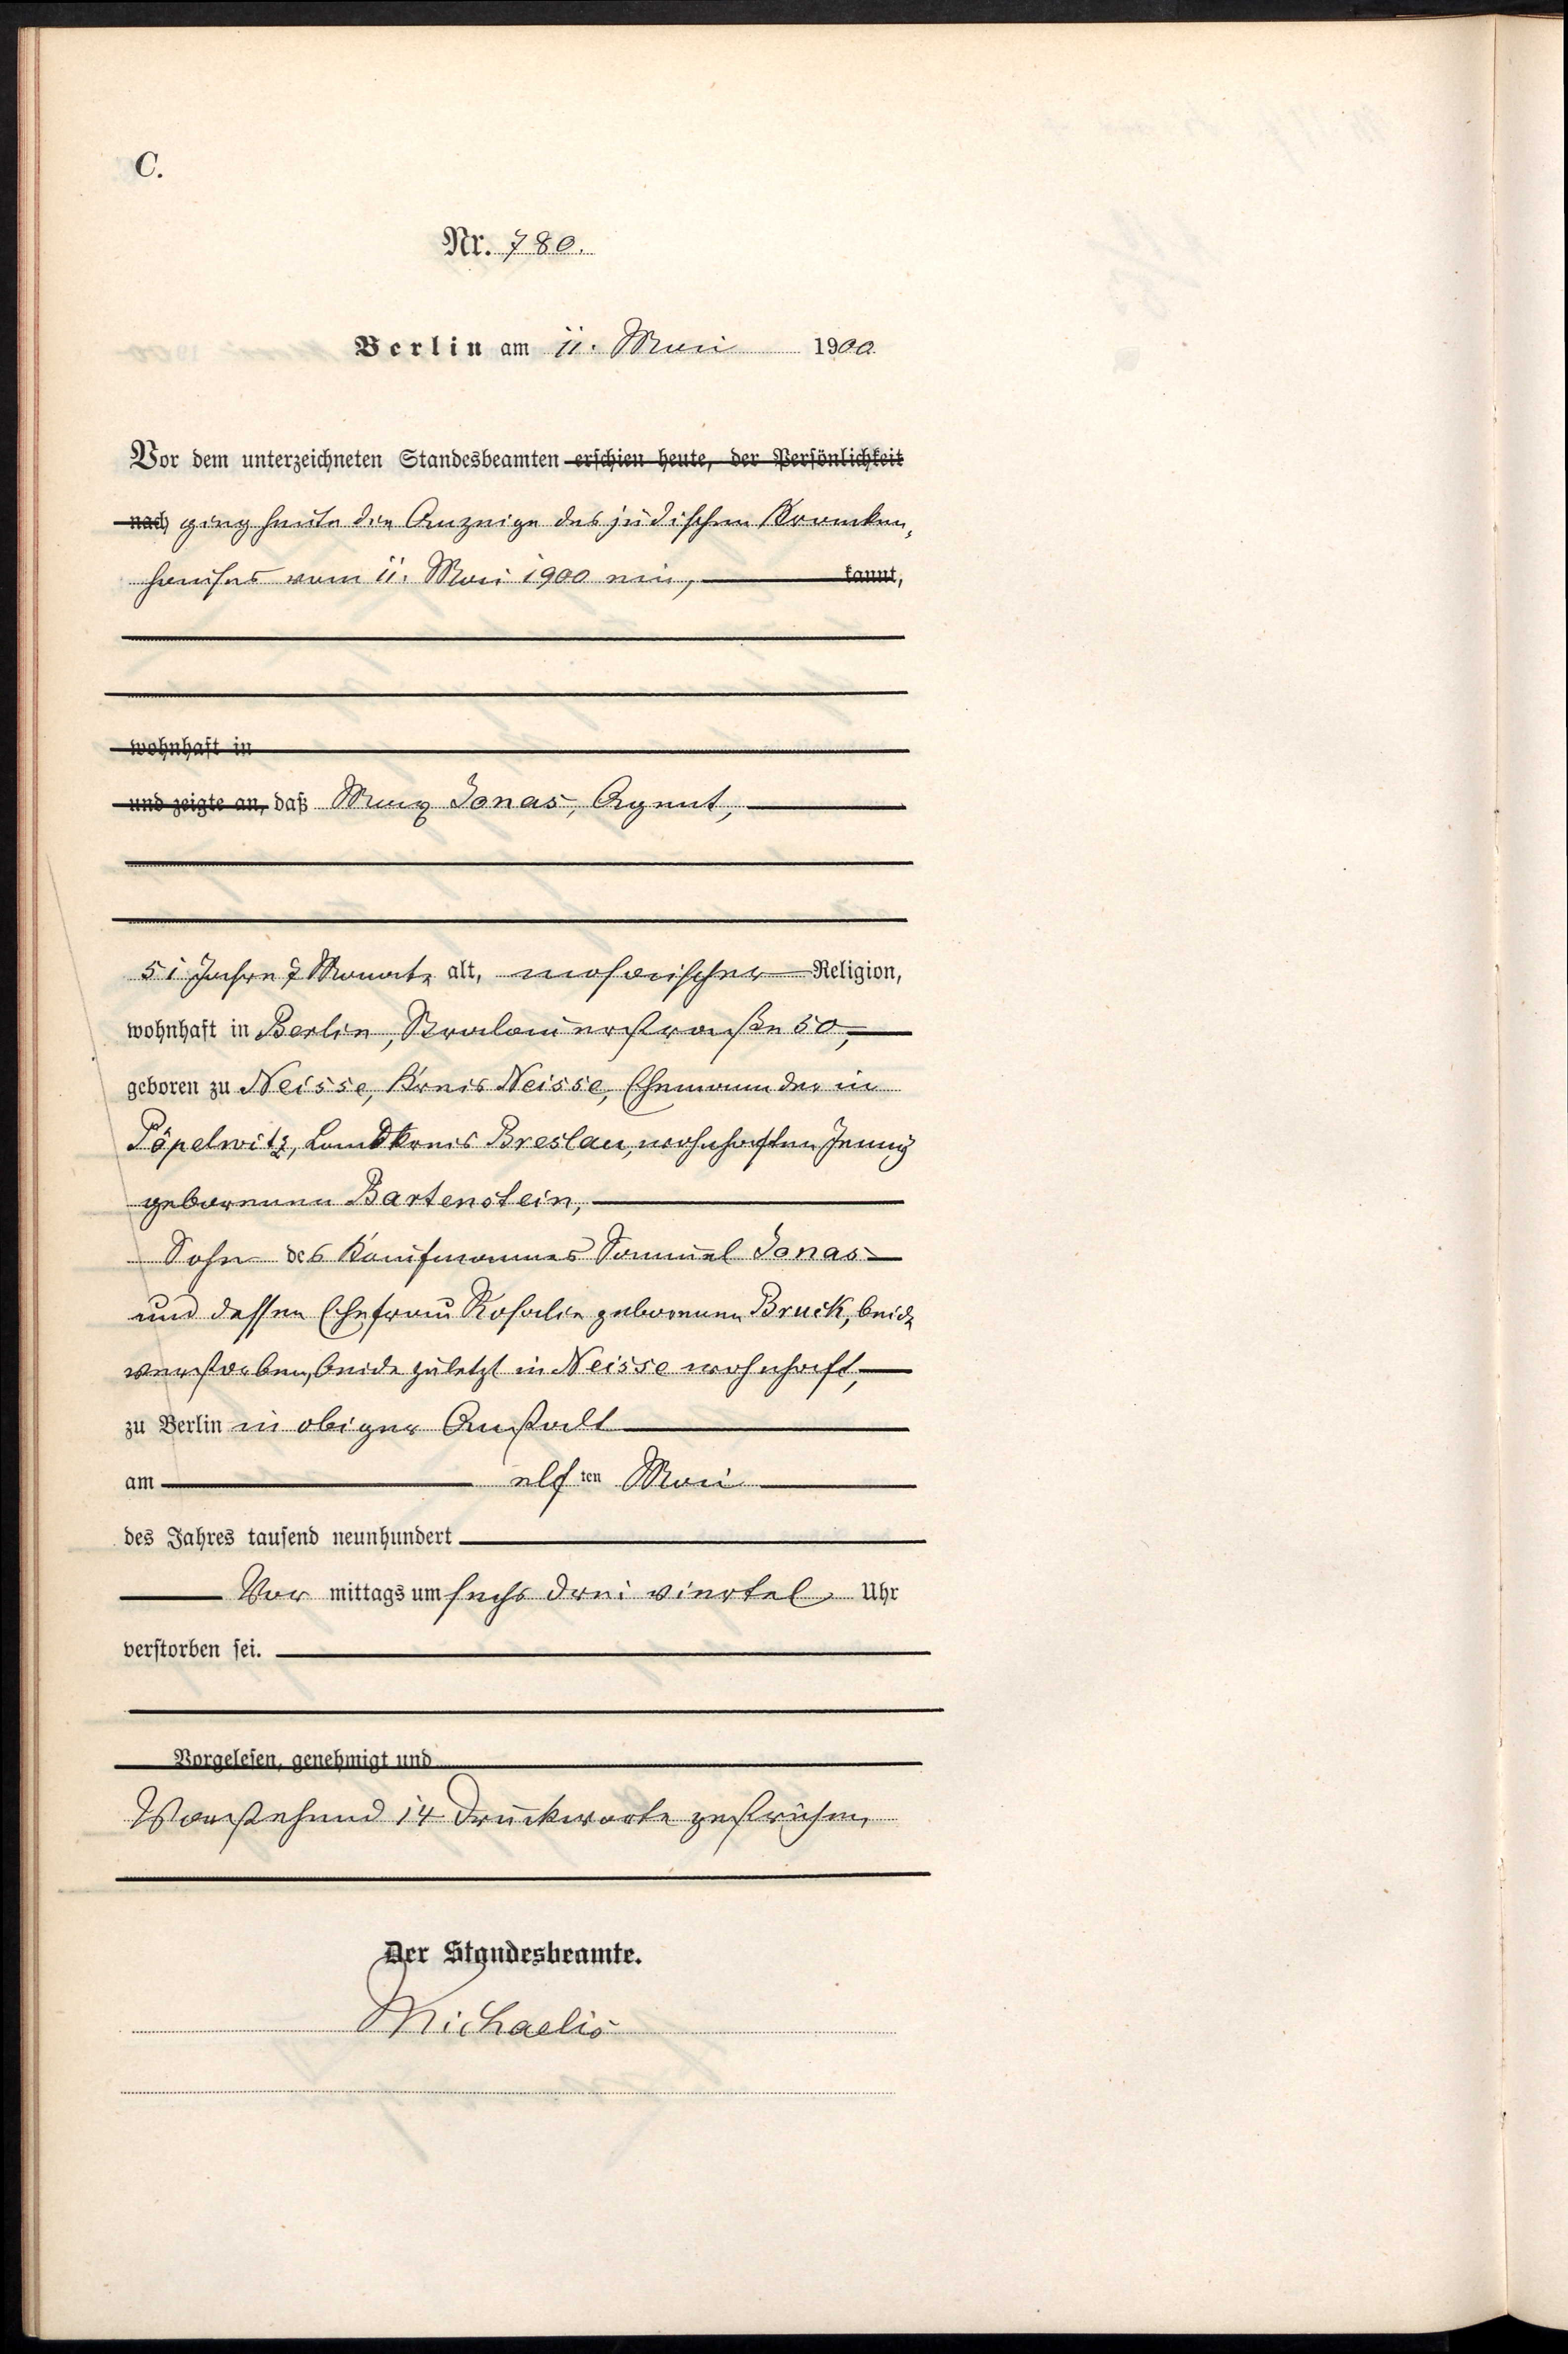 C.
Nr. 780.
Berlin am 11. Mai 1900
Vor dem unterzeichneten Standesbeamten erschien heute, der Persönlichkeit
nach ging heute die Anzeige des jüdischen Kranken,
hauses vom 11. Mai 1900 ein, kannt,
wohnhaft in
und zeigte an, daß Max Jonas, Agent,
51 Jahre 7 Monate alt, mosaischer Religion,
wohnhaft in Berlin, Stralauerstraße 50,
geboren zu Neisse, Kreis Neisse, Ehemann der in
Pöpelwitz, Landkreis Breslau, wohnhaften Jenny
geborenen Bartenstein,
Sohn des Kaufmannes Samuel Jonas
und dessen Ehefrau Rosalie geborenen Bruck, beide
verstorben, beide zuletzt in Neisse wohnhaft,
zu Berlin in obiger Anstalt
am elften Mai
des Jahres tausend neunhundert
Vor mittags um sechs drei viertel Uhr
verstorben sei.
Vorgelesen, genehmigt und
Vorstehend 14 Druckworte gestrichen,
Der Standesbeamte.
Michaelis